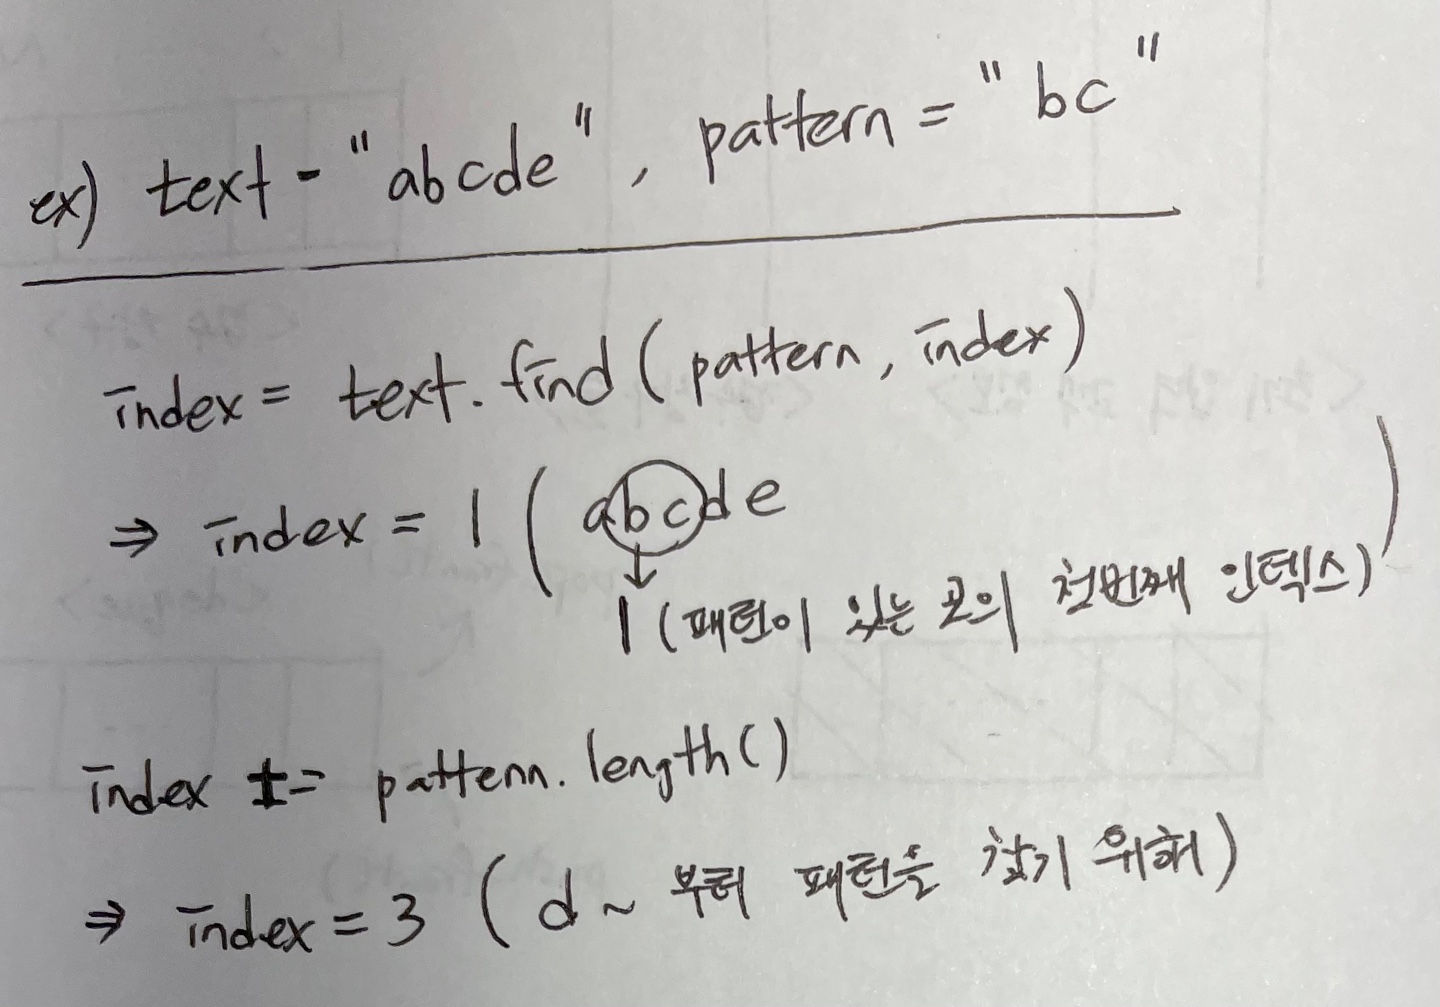 ex) text - "abcde", pattern = "bc"
index = text.find(pattern, index)
⇒ index = 1 ( abcde
↓
1 (패턴이 있는 곳의 첫번째 인덱스) )
index += pattern.length()
⇒ index = 3 ( d ~ 부터 패턴을 찾기 위해)